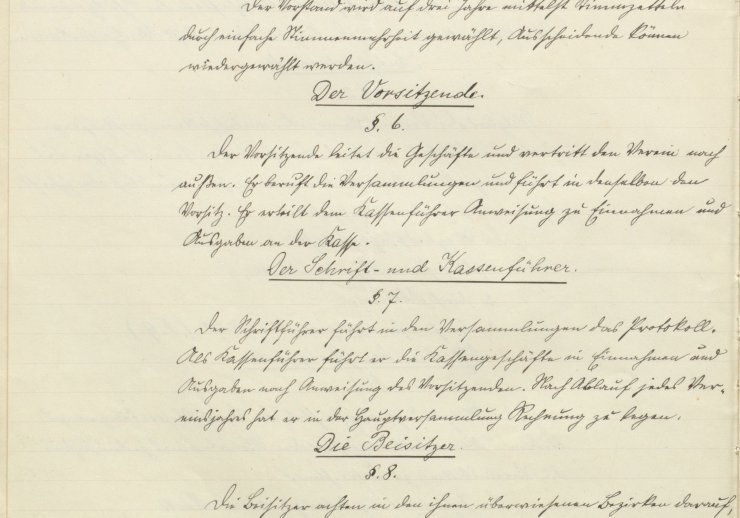 Der Vorstand wird auf drei Jahre mittelst Stimmzetteln
durch einfache Stimmenmehrheit gewählt, Ausscheidende können
wiedergewählt werden.
Der Vorsitzende.
§. 6.
Der Vorsitzende leitet die Geschäfte und vertritt den Verein nach
außen. Er beruft die Versammlungen und führt in denselben den
Vorsitz. Er erteilt dem Kassenführer Anweisung zu Einnahmen und
Ausgaben an der Kasse.
Der Schrift- und Kassenführer.
§. 7.
Der Schriftführer führt in den Versammlungen das Protokoll.
Als Kassenführer führt er die Kassengeschäfte in Einnahmen und
Ausgaben nach Anweisung des Vorsitzenden. Nach Ablauf jedes Ver-
einsjahres hat er in der Hauptversammlung Rechnung zu legen.
Die Beisitzer.
§. 8.
Die Beisitzer achten in den ihnen überwiesenen Bezirken darauf,